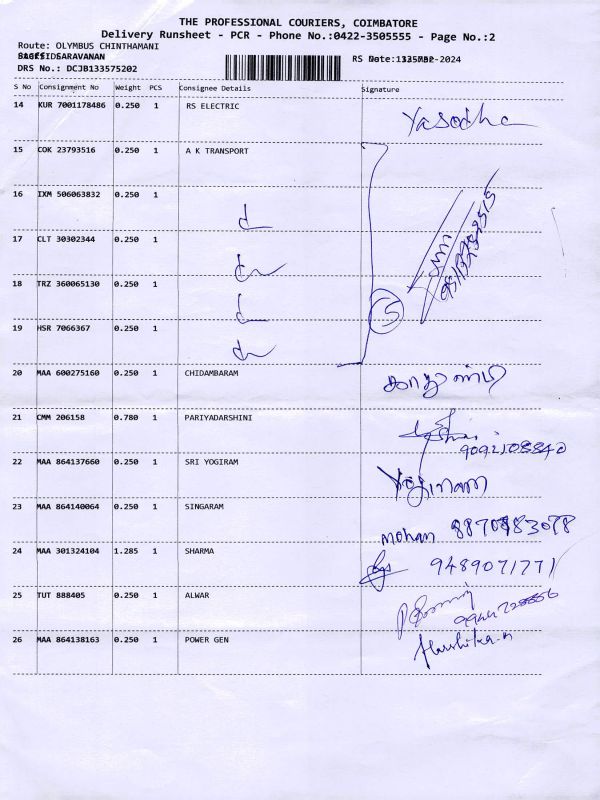 THE PROFESSIONAL COURIERS, COIMBATORE
Delivery Runsheet - PCR - Phone No.:0422-3505555 - Page No.:2
Route: OLYMBUS CHINTHAMANI
SARAVANAN
DRS No.: DCJB133575202
S No Consignment No Weight PCS Consignee Details Signature
14 KUR 7001178486 0.250 1 RS ELECTRIC Yasodha
15 COK 23793516 0.250 1 A K TRANSPORT
16 IXM 506063832 0.250 1
17 CLT 30302344 0.250 1
18 TRZ 360065130 0.250 1
5
19 HSR 7066367 0.250 1
20 MAA 600275160 0.250 1 CHIDAMBARAM
21 CMM 206158 0.780 1 PARIYADARSHINI
9092108840
22 MAA 864137660 0.250 1 SRI YOGIRAM Yoginam
23 MAA 864140064 0.250 1 SINGARAM
mohan 8870883078
24 MAA 301324104 1.285 1 SHARMA 9489071771
25 TUT 888405 0.250 1 ALWAR
26 MAA 864138163 0.250 1 POWER GEN Harshitka.n